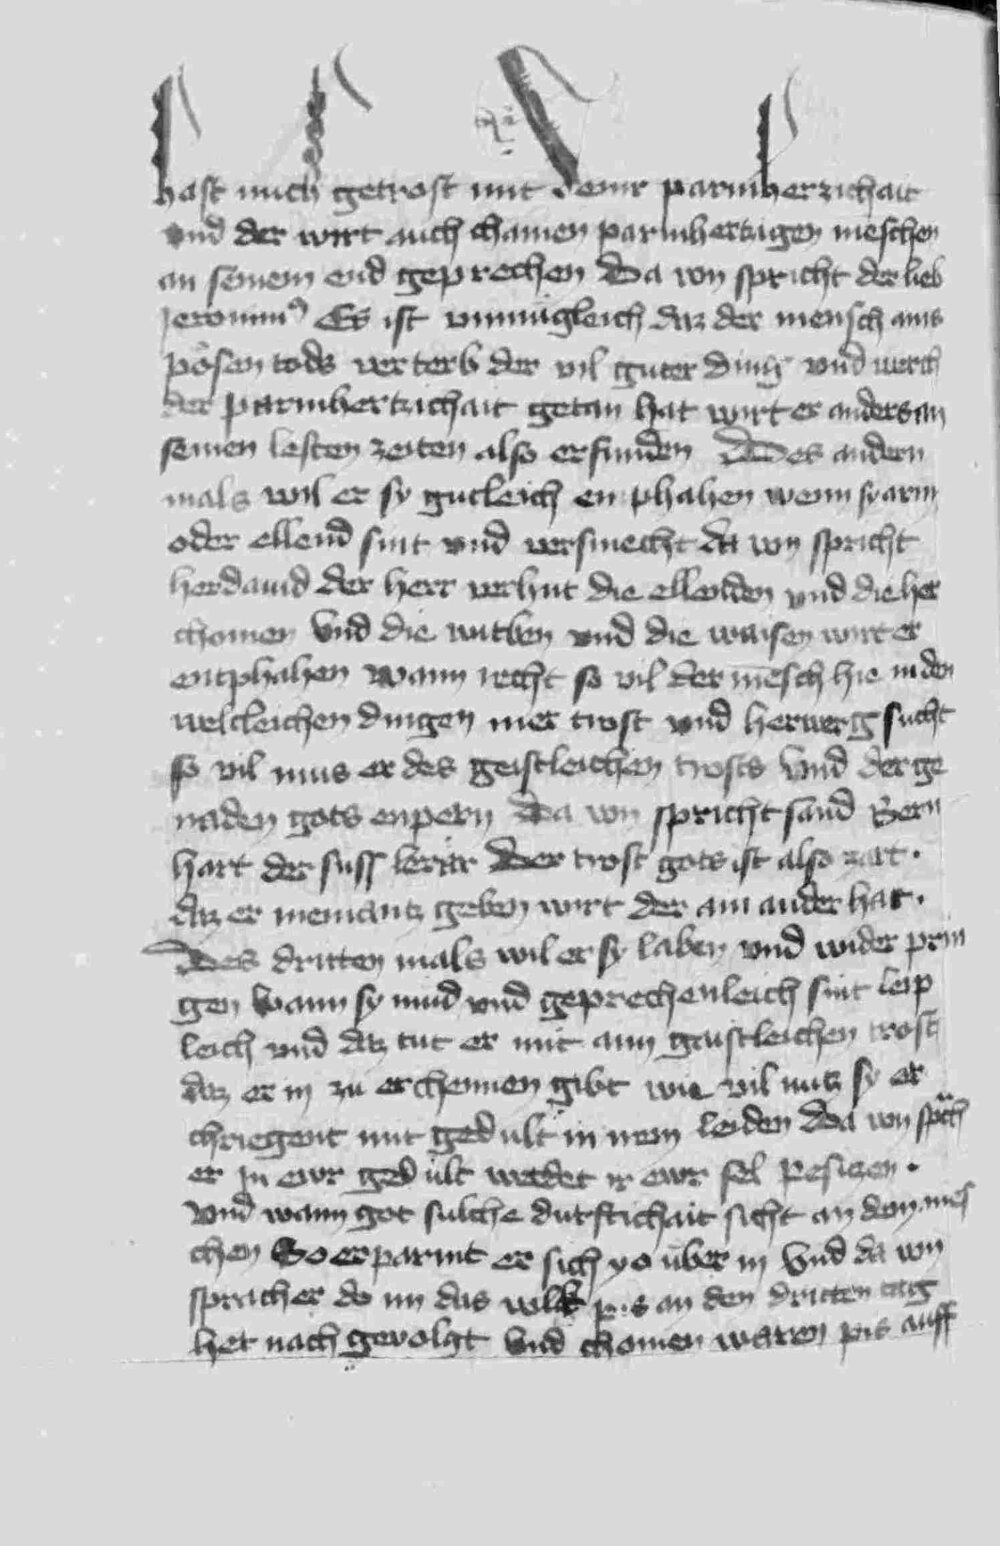 hast mich getrost mit deinr parmherzichait
vnd der wirt auch chainen parmhertzigen meschen
an seinem end geprechen Da von spricht der lieb
Jeronimꝰ Es ist vnmugleich daz der mensch ains
pösen tods verterb der vil guter ding vnd werch
der parmhertzichait getan hat wirt er anders an
seinen lesten zeiten also erfunden Des andern
mals wil er sy gutleich enphahen wenn sy arm
oder ellend sint vnd versmecht da von spricht
her dauid der herr verhut die ellenden vnd die her
chomen Vnd die witben vnd die waisen wirt er
entphahen wann recht so vil der mēsch hie in den
weltleichen dingen mer trost vnd herwerg sucht
so vil mus er des geistleichen trosts Vnd der ge
naden gots enpern Da von spricht sand Bern
hart der suss lerär Der trost gots ist also zart.
daz er niemantz geben wirt der ain ander hat.
Des dritten mals wil er sy laben vnd wider prin
gen Wann sy mud vnd geprechenleich sint leip
leich vnd daz tut er mit aim gaistleichen trost
daz er in zu erchennen gibt wie vil nutz sy er
chriegent mit gedult in irem leiden Da von sprach
er In ewr gedult werdet ir ewr sel besitzen.
Vnd wann got sulche durftichait sicht an den mēs
chen So erparmt er sich yo über in Vnd da von
sprach er do im das volk pis an den dritten tag
het nach geuolgt Vnd chomen waren pis auff